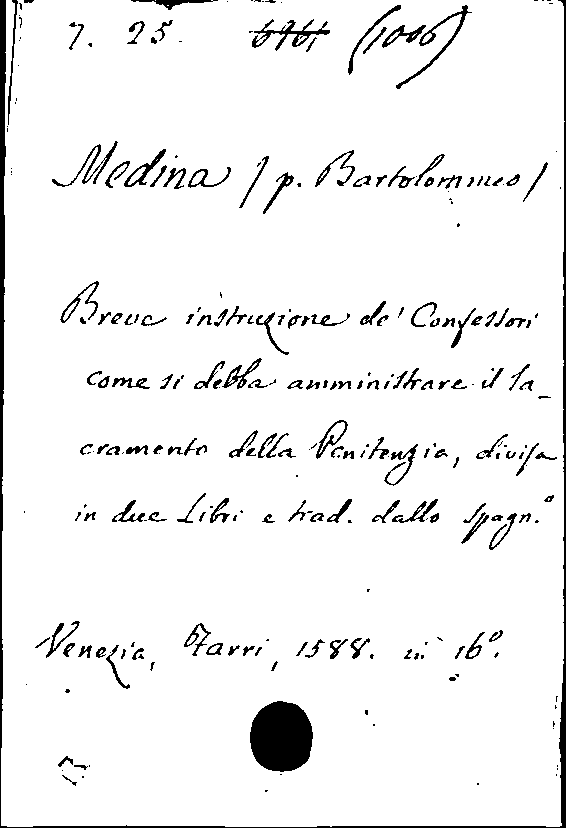 7. 25. 6961 (1006)
Medina / p. Bartolommeo /
Breve instruzione de' Confessori
come si debba amministrare il Sa-
cramento della Penitenzia, divisa
in due Libri e trad. dallo spagn.º
Venezia, Zarri, 1588. in 16º.